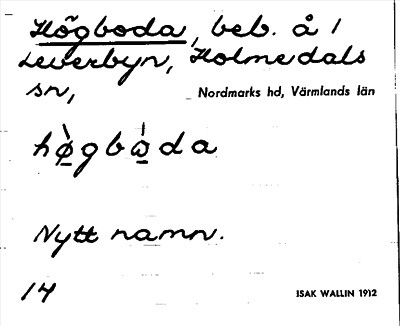 Högboda, beb. å 1
Leverbyn, Holmedals
sn,
Nordmarks hd, Värmlands län
hø̀gbò̱da
Nytt namn.
14
ISAK WALLIN 1912